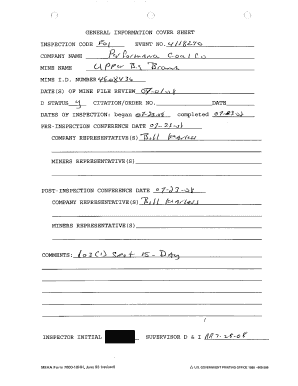 GENERAL INFORMATION COVER SHEET
INSPECTION CODE E01 EVENT NO. 4118270
COMPANY NAME Performance Coal Co
MINE NAME Upper Big Branch
MINE I.D. NUMBER 4608436
DATE(S) OF MINE FILE REVIEW 07-01-08
D STATUS Y CITATION/ORDER NO. DATE
DATES OF INSPECTION: began 07-23-08 completed 07-23-08
PRE-INSPECTION CONFERENCE DATE 07-23-08
COMPANY REPRESENTATIVE(S) Bill
MINERS REPRESENTATIVE(S)
POST-INSPECTION CONFERENCE DATE 07-23-08
COMPANY REPRESENTATIVE(S) Bill
MINERS REPRESENTATIVE(S)
COMMENTS: 103(i) Spot 15-DAY
INSPECTOR INITIAL SUPERVISOR D & I 7-28-08
MSHA Form 7000-10(H), June 93 (revised) U.S. GOVERNMENT PRINTING OFFICE